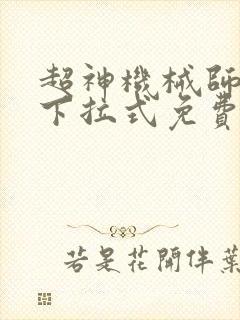 超神機械師
下拉式免費
若是花開伴葉